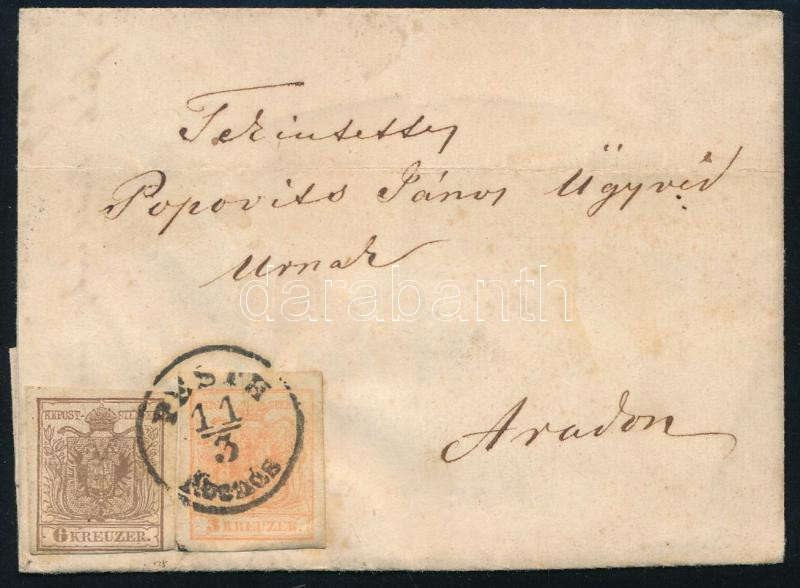 Tekintettes
Popovits János Ügyvéd
Urnak
darabanth
Aradon
PESTH
11/3
Abends
KKPOST-STEMPEL
6 KREUZER.
3 KREUZER.